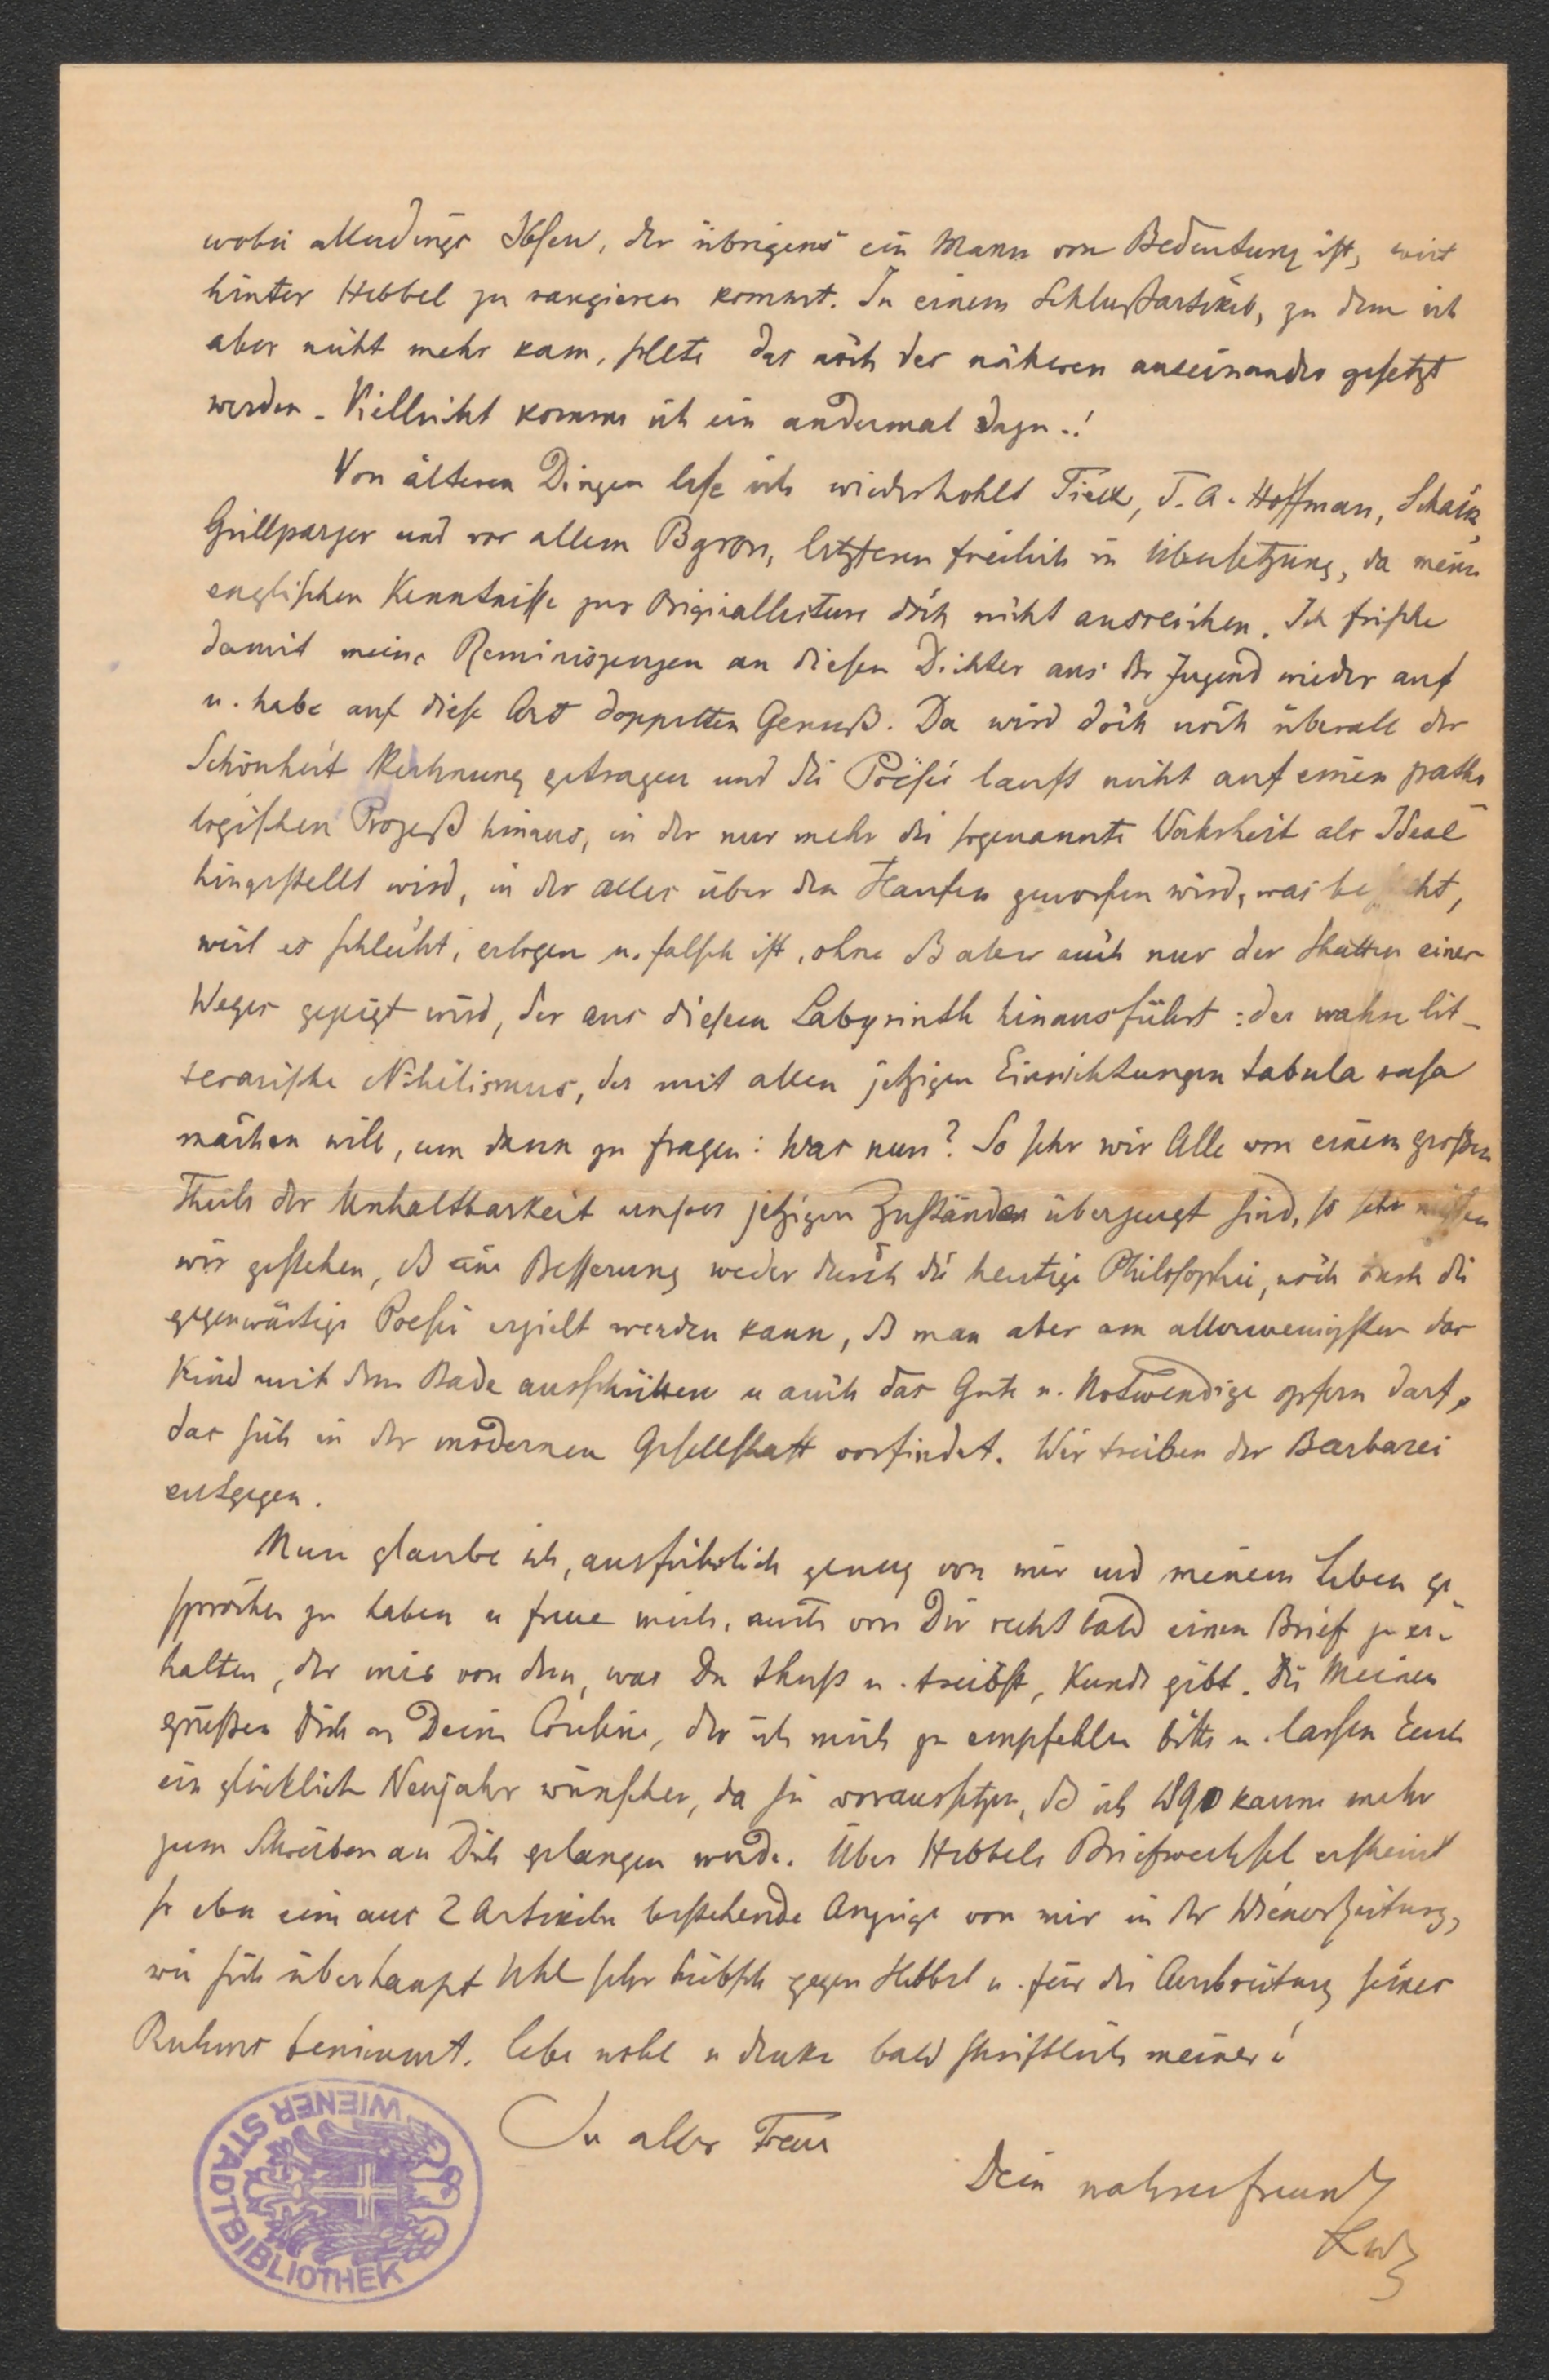 wobei allerdings Ibsen, der übrigens ein Mann von Bedeutung ist, weit
hinter Hebbel zu rangieren kommt. In einem Schlußartikel, zu dem ich
aber nicht mehr kam, sollte das noch des näheren auseinander gesetzt
werden. Vielleicht komme ich ein andermal dazu.!
Von älteren Dingen lese ich wiederhohlt Tieck, T. A. Hoffman, Schack,
Grillparzer und vor allem Byron, letzteren freilich in Übersetzung, da meine
englischen Kenntnisse zur Originallectüre doch nicht ausreichen. Ich frische
damit meine Reminiszenzen an diesen Dichter aus der Jugend wieder auf
u. habe auf diese Art doppelten Genuß. Da wird doch noch überall der
Schönheit Rechnung getragen und die Poësie lauft nicht auf einen patho-
logischen Prozeß hinaus, in der nur mehr die sogenannte Wahrheit als Ideal
hingestellt wird, in der alles über den Haufen geworfen wird, was besteht,
weil es schlecht, erlogen u. falsch ist, ohne ß aber auch nur der Schatten eines
Weges gezeigt wird, der aus diesem Labyrinth hinausführt: der wahre lit-
terarische Nihilismus, der mit allen jetzigen Einrichtungen tabula rasa
machen will, um dann zu fragen: Was nun? So sehr wir Alle von einem großen
Theile der Unhaltbarkeit unserer jetzigen Zuständen überzeugt sind, so sehr müssen
wir gestehen, ß eine Besserung weder durch die heutige Philosophie, noch durch die
gegenwärtige Poesie erzielt werden kann, ß man aber am allerwenigsten das
Kind mit dem Bade ausschütten u auch das Gute u. Notwendige opfern darf,
das sich in der modernen Gesellschaft vorfindet. Wir treiben der Barbarei
entgegen.
Nun glaube ich, ausführlich genug von mir und meinem Leben ge-
sprochen zu haben u freue mich, auch von Dir recht bald einen Brief zu er-
halten, der mir von dem, was Du thust u. treibst, Kunde gibt. Die Meinen
grüßen Dich u Deine Cousine, der ich mich zu empfehlen bitte u. lassen Euch
ein glückliches Neujahr wünschen, da sie voraussetzen, ß ich 1890 kaum mehr
zum Schreiben an Dich gelangen werde. Über Hebbels Briefwechsel erscheint
so eben eine aus 2 Artikeln bestehende Anzeige von mir in der Wiener Zeitung,
wie sich überhaupt Uhl sehr hübsch gegen Hebbel u. für die Ausbreitung seines
Ruhmes benimmt. Lebe wohl u denke bald schriftlich meiner!
In alter Treue
Dein wahrer Freund
WIENER STADTBIBLIOTHEK